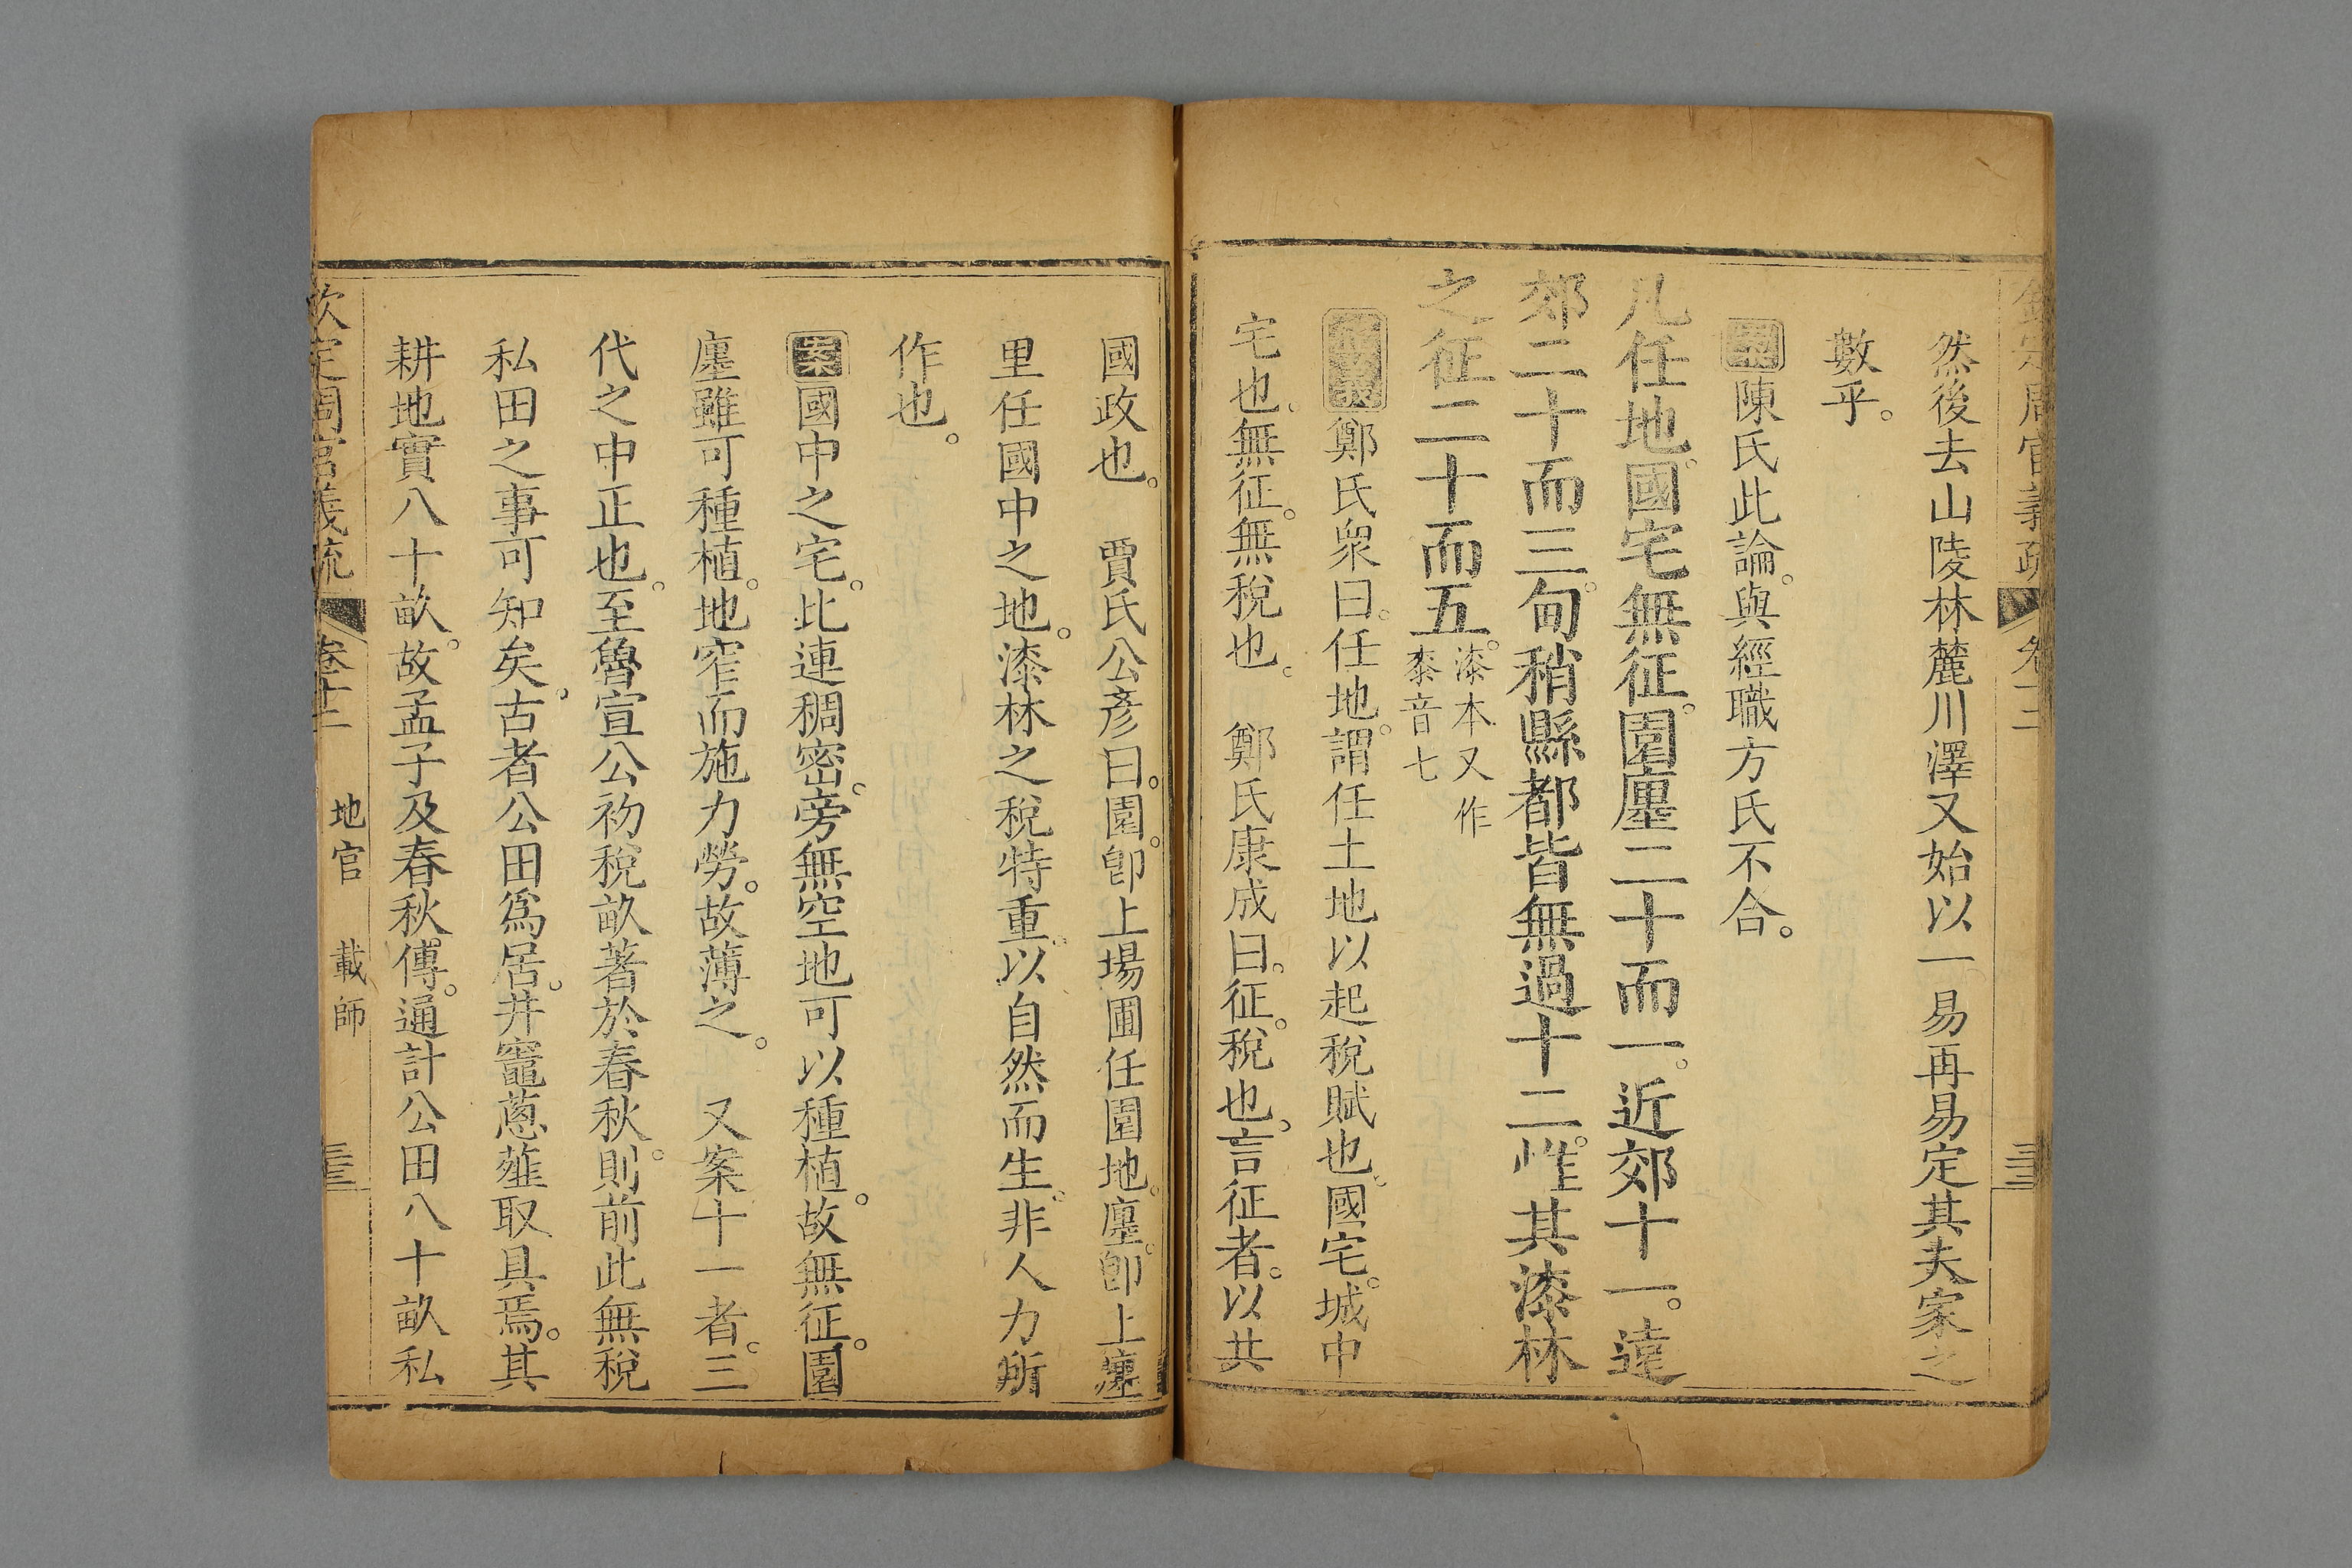 然後去山陵林麓川澤又始以一易再易定其夫家之
數乎。
案陳氏此論。與經職方氏不合。
凡任地。國宅無征。園廛二十而一。近郊十一。遠
郊二十而三。甸稍縣都皆無過十二。惟其漆林
之征二十而五。漆本又作
桼音七
鄭氏衆曰。任地。謂任土地以起稅賦也。國宅。城中
宅也。無征。無稅也。 鄭氏康成曰。征。稅也。言征者。以共
國政也。 賈氏公彥曰。園。卽上場圃任園地。廛。卽上廛
里任國中之地。漆林之稅特重。以自然而生。非人力所
作也。
案國中之宅。比連稠密。旁無空地可以種植。故無征。園
廛雖可種植。地窄而施力勞。故薄之。 又案十一者。三
代之中正也。至魯宣公初稅畝著於春秋。則前此無稅
私田之事可知矣。古者公田爲居。井竈蔥薤取具焉。其
耕地實八十畝。故孟子及春秋傳。通計公田八十畝私
欽定周官義疏 卷十二 地官 載師